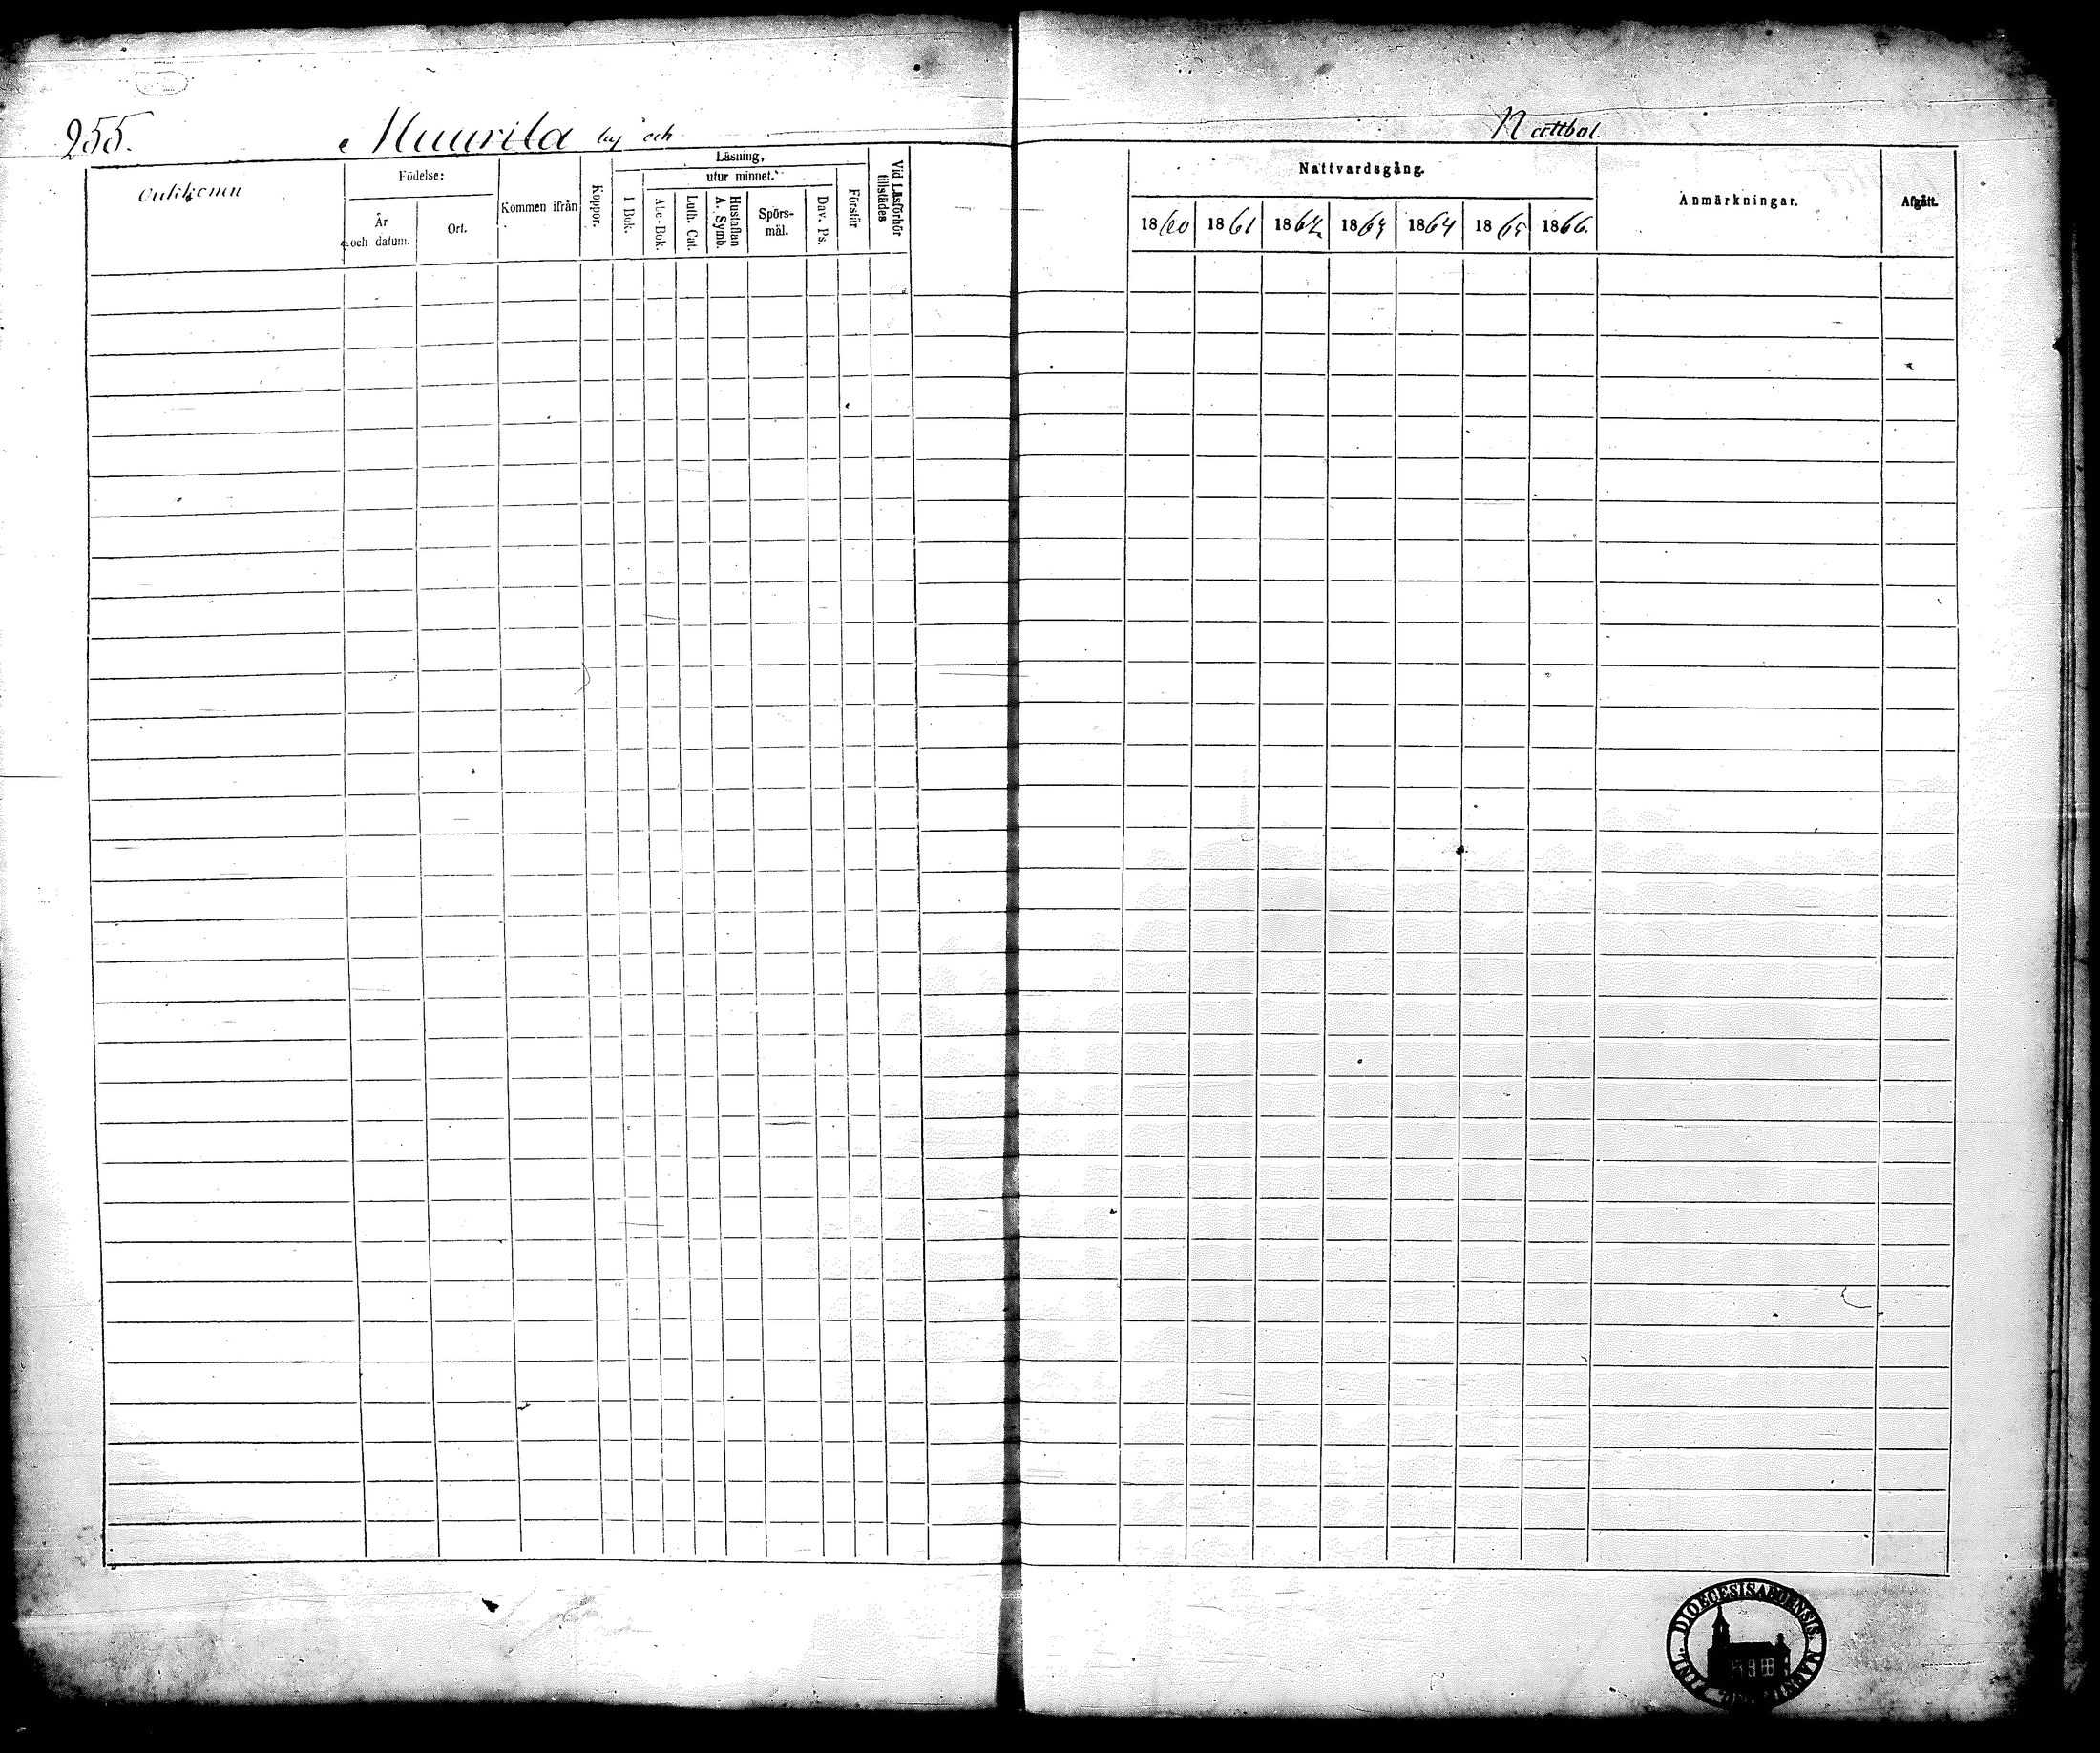 255.
Muurila by och
Nattbol.
Födelse:
År och datum.
Ort.
Kommen ifrån
Koppor.
Läsning,
utur minnet.
I Bok.
Abc-Bok.
Luth. Cat.
Hustaflan A. Symb.
Spörs-mål.
Dav. Ps.
Förstår
Vid Läsförhör tillstädes
Nattvardsgång.
1860 1861 1862 1863 1864 1865 1866.
Anmärkningar.
Afgått.
DIOECESIS ABOENSIS